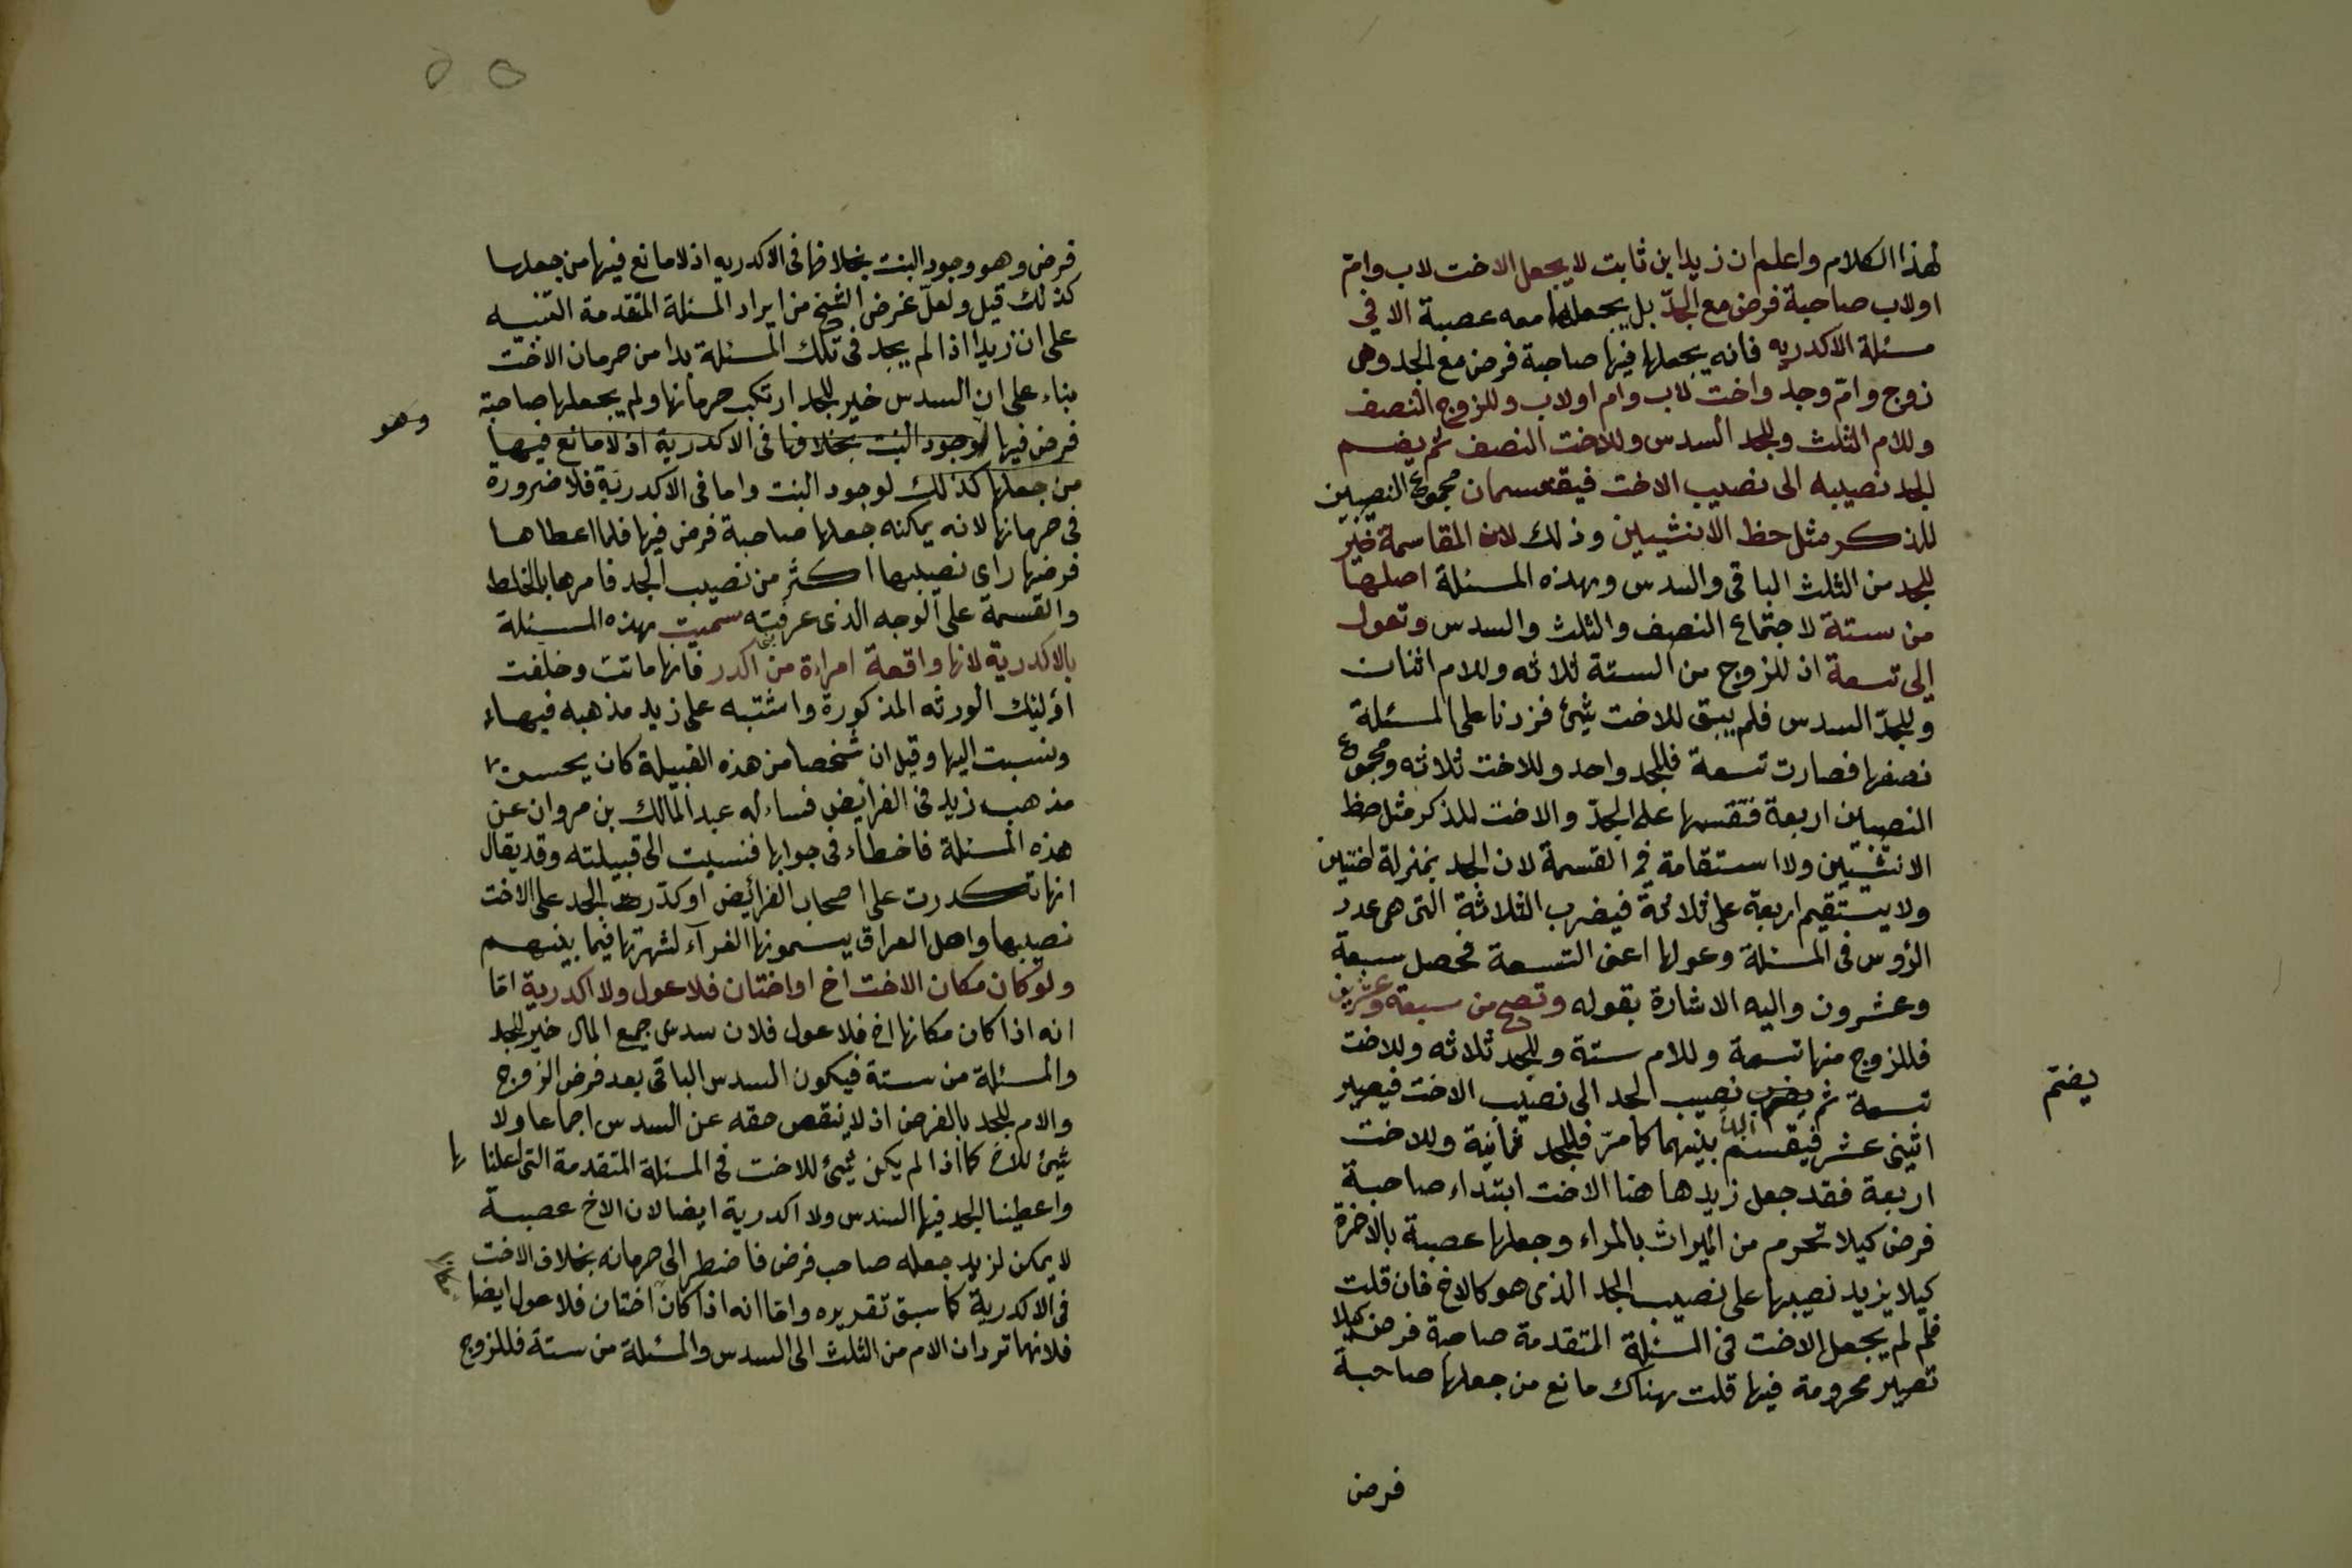 لهذا الكلام واعلم ان زيد ابن ثابت لا يجعل الاخت لاب وام
اولاب صاحبة فرض مع الجدّ بل يجعلها معه عصبة الا في
مسئلة الاكدريه فانه يجعلها فيها صاحبة فرض مع الجد وهى
زوج وامّ وجد واخت لاب وام اولاب وللزوج النصف
وللام الثلث وللجد السدس وللاخت النصف ثم يضم
الجد نصيبه الى نصيب الاخت فيقتسمان مجموع النصيبين
للذكر مثل حظ الانثيين وذلك لان المقاسمة خير
للجد من الثلث الباقى والسدس وبهذه المسئلة اصلها
من ستة لاجتماع النصف والثلث والسدس وتعول
الى تسعة اذ للزوج من الستة ثلاثه وللام اثنان
وللجدّ السدس فلم يبق للاخت شيئ فزدنا على المسئلة
نصفها فصارت تسعة فللجد واحد وللاخت ثلاثه ومجموع
النصيبان اربعة فتقسمها على الجدّ والاخت للذكر مثل حظ
الانثيين ولا استقامة في القسمة لان الجد بمنزلة اختين
ولا يستقيم اربعة على ثلاثة فيضرب الثلاثة التى هى عدد
الرؤس فى المسئلة وعولها اعنى التسعة فحصل سبعة
وعشرون واليه الاشارة بقوله وتصح من سبعة وعشرين
فللزوج منها تسعة وللام ستة وللجد ثلاثه وللاخت
تسعة ثم يضم نصيب الجد الى نصيب الاخت فيصير
يضتم
اثنى عشر فيقسم بينهما كما مرّ فللجد ثمانية وللاخت
اربعة فقد جعل زيد ها هنا الاخت ابتداء صاحبة
فرض كيلا تحرم من الميراث بالمراء وجعلها عصبة بالاخرة
كيلا يزيد نصيبها على نصيب الجد الذى هو كالاخ فان قلت
فلم لم يجعل الاخت فى المسئلة المتقدمة صاحبة فرض كيلا
تصير محرومة فيها قلت بهناك مانع من جعلها صاحبة
فرض
٥ ٥
فرض وهو وجود البنت بخلافها فى الاكدريه اذ لا مانع فيها من جعلها
كذلك قيل ولعلّ غرض الشيخ من ايراد المسئلة المتقدمة التنبيه
على ان زيدا اذا لم يجد فى تلك المسئلة بدا من حرمان الاخت
بناء على ان السدس خير للجد ارتكب حرمانها ولم يجعلها صاحبة
وهو
فرض فيها لوجود البنت بخلافها فى الاكدرية اذ لا مانع فيها
من جعلها كذلك لوجود البنت واما فى الاكدريّة فلا ضرورة
فى حرمانها لانه يمكنه جعلها صاحبة فرض فيها فلما اعطاها
فرضها راى نصيبها اكثر من نصيب الجد فامرها بالخلط
والقسمة على الوجه الذى عرفته سميت بهذه المسئلة
بالاكدرية لانها واقعة امراءة من اكدر فانها ماتت وخلفت
اولئك الورثه المذكورة واشتبه على زيد مذهبه فيها
ونسبت اليها وقيل ان شخصا من هذه القبيلة كان يحسن
مذهب زيد فى الفرايض فساءله عبد المالك بن مروان عن
هذه المسئلة فاخطاء فى جوابها فنسبت الى قبيلته وقد يقال
انها تكدرت على اصحاب الفرائض او كدّرت الجد على الاخت
نصيبها واهل العراق يسمونها الغرآء لشهرتها فيما بينهم
ولو كان مكان الاخت اخ او اختان فلا عول ولا اكدرية امّا
انه اذا كان مكانها اخ فلا عول فلان سدس جميع المال خير للجد
والمسئلة من ستة فيكون السدس الباقى بعد فرض الزوج
والام للجد بالفرض اذ لا ينقص حقه عن السدس اجماعا ولا
شيئ للاخ كما اذا لم يكن شيئ للاخت فى المسئلة المتقدمة التى
واعطينا الجد فيها السدس ولا اكدرية ايضا لان الاخ عصبة
لا يمكن لزيد جعله صاحب فرض فاضطر الى حرمانه بخلاف الاخت
فى الاكدرية كما سبق تقريره وامّا انه اذا كان اختان فلا عول ايضا
فلانهما تردان الام من الثلث الى السدس والمسئلة من ستة فللزوج